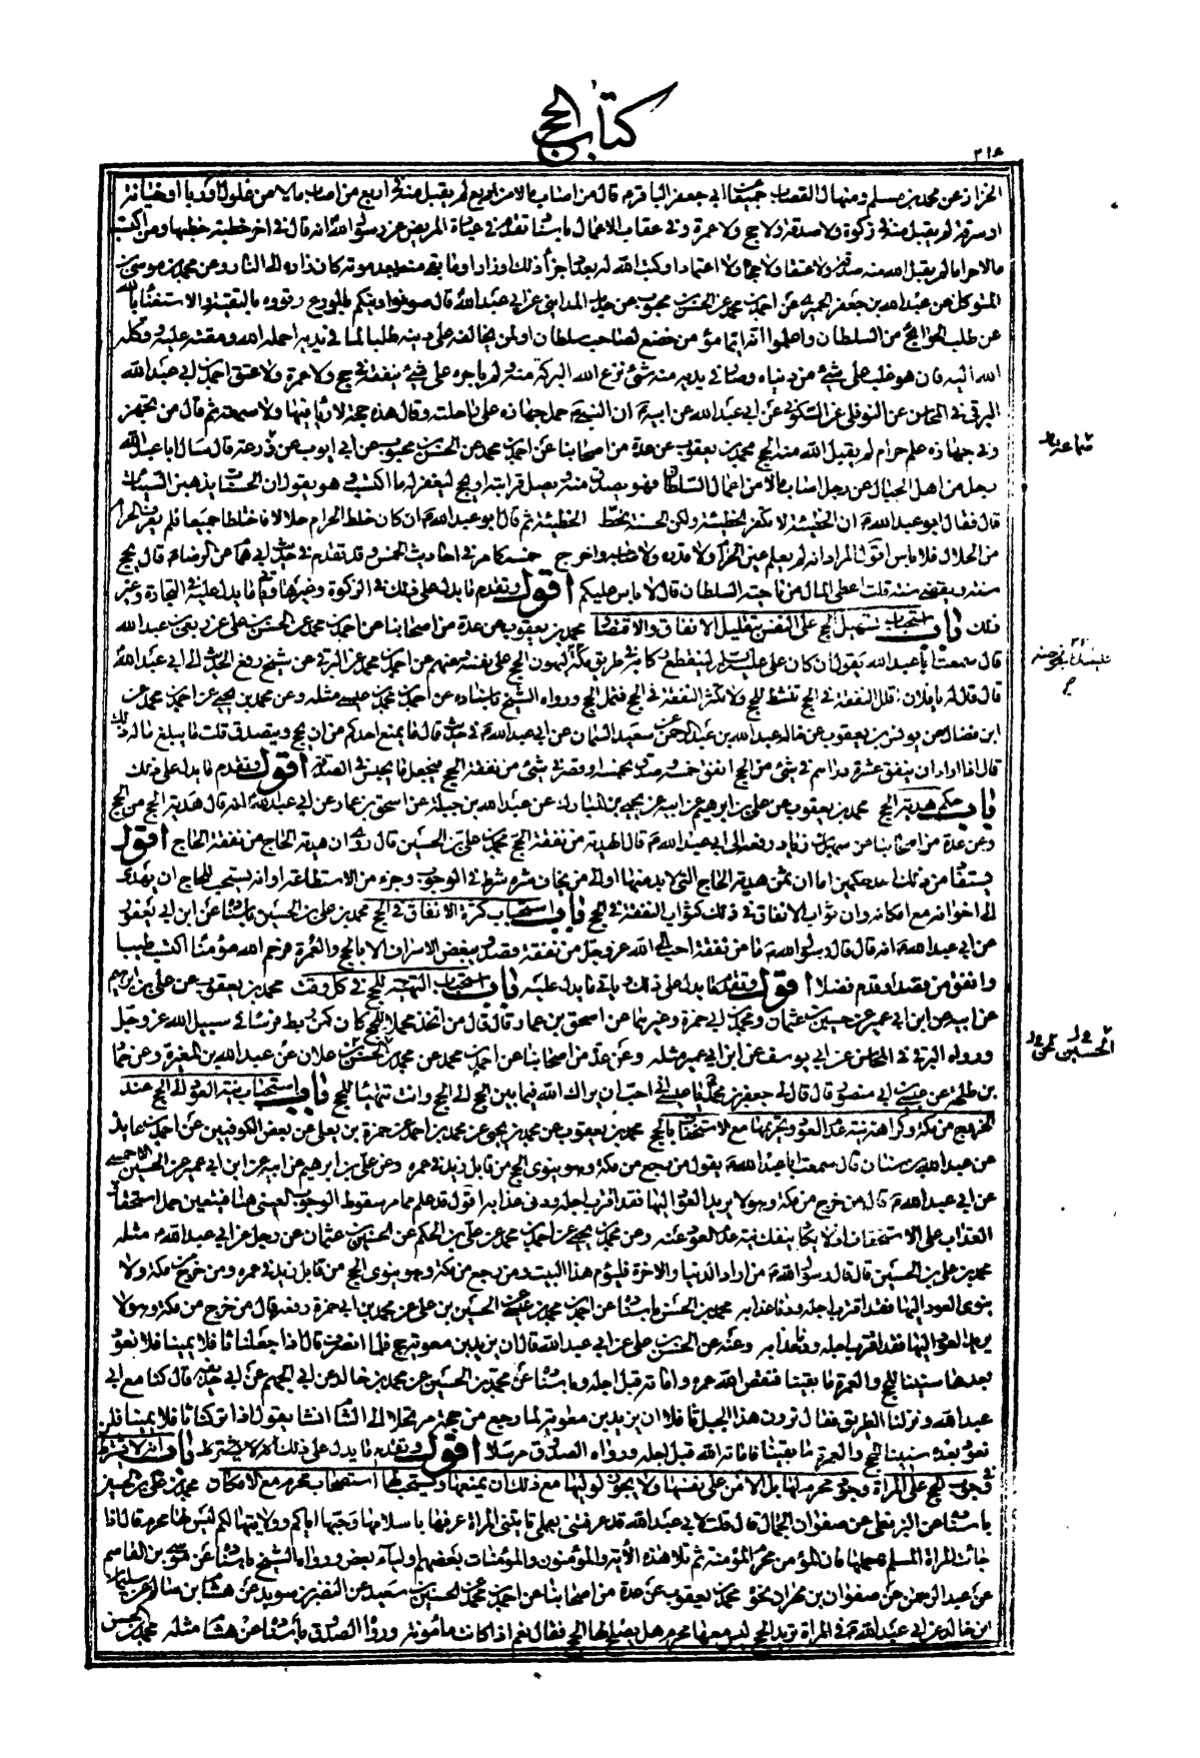 كتاب الحج
٢١٤
الخزاز عن محمد بن مسلم ومنهال القصاب جميعا عن ابي جعفر الباقر ع قال من اصاب مالا من اربع لم يقبل منه في اربع من اصاب مالا من غلول او ربا او خيانة
او سرقة لم يقبل منه في زكوة ولا صدقة ولا حج ولا عمرة وفي عقاب الاعمال باسناد تقدم في عيادة المريض عن رسول الله انه قال في اخر خطبة خطبها ومن اكتسب
مالا حراما لم يقبل الله منه صدقة ولا عتقا ولا حجا ولا اعتمارا وكتب الله له بعدد اجزاء ذلك اوزارا وما بقي منه بعد موته كان زاده الى النار وعن محمد بن موسى بن
المتوكل عن عبد الله بن جعفر الحميري عن احمد بن محمد عن الحسن بن محبوب عن حديد المدايني عن ابي عبد الله قال صونوا دينكم بالورع وقووه بالتقية والاستغناء بالله
عن طلب الحوائج من السلطان واعلموا انه ايما مؤمن خضع لصاحب سلطان او لمن يخالفه على دينه طلبا لما في يديه اخمله الله ومقته عليه ووكله
الله اليه فان هو غلب على شيء من دنياه وصار في يديه منه شيء نزع الله البركة منه ولم ياجره على شيء ينفقه في حج ولا عمرة ولا عتق احمد بن ابي عبد الله
البرقي في المحاسن عن النوفلي عن السكوني عن ابي عبد الله عن ابيه ان النبي ص حمل جهازه على راحلته وقال هذه حجة لا رياء فيها ولا سمعة ثم قال من تجهز
وفي جهازه علم حرام لم يقبل الله منه الحج محمد بن يعقوب عن عدة من اصحابنا عن احمد بن محمد عن الحسن بن محبوب عن ابي ايوب عن زرعة قال سال ابا عبد الله
رجل من اهل الجبال عن رجل اصاب مالا من اعمال السلطان فهو يصدق منه ويصل قرابته او يحج ليغفر له ما اكتسب وهو يقول ان الحسنات يذهبن السيئات
قال فقال ابو عبد الله ع ان الخطيئة لا تكفر الخطيئة ولكن الحسنة تحط الخطيئة ثم قال ابو عبد الله ع ان كان خلط الحرام حلالا فاختلطا جميعا فلم يعرف الحرام
من الحلال فلا باس اقول المراد انه لم يعلم عين الحرام ولا قدره ولا صاحبه واخرج خمسه كما مر في احاديث الخمس وقد تقدم في حديث ابي همام عن الرضا ع قال يحج
منه ويقضي منه قلت اعطي المال من ناحية السلطان قال لا باس عليكم اقول وتقدم ما يدل على ذلك في الزكوة وغيرها وياتي ما يدل عليه في التجارة وغير
ذلك باب استحباب تسهيل الحج على النفس بتقليل الانفاق والاقتصاد محمد بن يعقوب عن عدة من اصحابنا عن احمد بن محمد عن الحسن بن علي عن ربعي بن عبد الله
قال سمعت ابا عبد الله يقول ان كان علي ع لينقطع ركابه في طريق مكة ليهون الحج على نفسه وعنهم عن احمد بن محمد عن البرقي عن شيخ رفع الحديث الى ابي عبد الله
قال قال له يا فلان اقلل النفقة في الحج تنشط للحج ولا تكثر النفقة في الحج فتمل الحج ورواه الشيخ باسناده عن احمد بن محمد بن عيسى مثله وعن محمد بن يحيى عن احمد بن محمد عن
ابن فضال عن يونس بن يعقوب عن خاله عبد الله بن عبد الرحمن عن سعيد السمان عن ابي عبد الله ع في حديث قال ما يمنع احدكم من ان يحج ويتصدق قلت ما يبلغ ماله ذلك
قال اذا اراد ان ينفق عشرة دراهم في شيء من الحج انفق خمسة وتصدق بخمسة او قصر في شيء من نفقة الحج فيجعل ما يحبس في الصدقة اقول وتقدم ما يدل على ذلك
باب حكم هدية الحج محمد بن يعقوب عن علي بن ابراهيم عن ابيه عن يحيى بن المبارك عن عبد الله بن جبلة عن اسحق بن عمار عن ابي عبد الله انه قال هدية الحج من الحج
وعن عدة من اصحابنا عن سهل بن زياد رفعه الى ابي عبد الله ع قال الهدية من نفقة الحج محمد بن علي بن الحسين قال روي ان هدية الحاج من نفقة الحاج اقول
يستفاد من ذلك احد حكمين اما ان ثمن هدية الحاج التي لا بد منها اولى من يخاف شره شرط في الوجوب وجزء من الاستطاعة او انه يستحب للحاج ان يهدي
الى اخوانه مع امكانه وان ثواب الانفاق في ذلك كثواب النفقة في الحج باب استحباب كثرة الانفاق في الحج محمد بن علي بن الحسين باسناده عن ابن ابي يعفور
عن ابي عبد الله ع انه قال قال رسول الله ص ما من نفقة احب الى الله عز وجل من نفقة قصد ويبغض الاسراف الا بالحج والعمرة فرحم الله مؤمنا اكتسب طيبا
وانفق من قصد او قدم فضلا اقول وتقدم ما يدل على ذلك وياتي ما يدل عليه باب استحباب التهيئة للحج في كل وقت محمد بن يعقوب عن علي بن ابراهيم
عن ابيه عن ابن ابي عمير عن حسين بن عثمان ومحمد بن ابي حمزة وغيرهما عن اسحق بن عمار قال قال من اتخذ محملا للحج كان كمن ربط فرسا في سبيل الله عز وجل
ورواه البرقي في المحاسن عن ابي يوسف عن ابن ابي عمير مثله وعن عدة من اصحابنا عن احمد بن محمد عن محمد بن الحسن علان عن عبد الله بن المغيرة عن حماد
بن طلحة عن عيسى بن ابي منصور قال قال لي جعفر بن محمد يا عيسى اني احب ان يراك الله فيما بين الحج الى الحج وانت تتهيا للحج باب استحباب نية العود الى الحج عند
الخروج من مكة وكراهة نية عدم العود وتحريمها مع الاستخفاف بالحج محمد بن يعقوب عن محمد بن يحيى عن محمد بن احمد عن حمزة بن يعلى عن بعض الكوفيين عن احمد بن عايذ
عن عبد الله بن سنان قال سمعت ابا عبد الله ع يقول من رجع من مكة وهو ينوي الحج من قابل زيد في عمره وعن علي بن ابراهيم عن ابيه عن ابن ابي عمير عن الحسين الاحمسي
عن ابي عبد الله ع قال من خرج من مكة وهو لا يريد العود اليها فقد اقترب اجله ودنى عذابه اقول قد علم مما مر سقوط الوجوب العيني هنا فيتعين حمل استحقاق
العذاب على الاستخفاف اذ لا يكاد ينفك نية عدم العود عنه وعن محمد بن يحيى عن احمد بن محمد عن علي بن الحكم عن الحسين بن عثمان عن رجل عن ابي عبد الله ع مثله
محمد بن علي بن الحسين قال قال رسول الله ص من اراد الدنيا والاخرة فليؤم هذا البيت ومن رجع من مكة وهو ينوي الحج من قابل زيد في عمره ومن خرج من مكة ولا
ينوي العود اليها فقد اقترب اجله ودنا عذابه محمد بن الحسن باسناده عن احمد بن محمد بن عيسى عن الحسين بن علي عن محمد بن ابي حمزة رفعه قال من خرج من مكة وهو لا
يريد العود اليها فقد اقترب اجله ودنا عذابه وعنه عن الحسن بن علي عن ابي عبد الله قال ان يزيد بن معوية حج فلما انصرف قال اذا جعلنا ثافلا يمينا فلا نعود
بعدها سنينا للحج والعمرة ما بقينا فنقص الله عمره واماته قبل اجله وباسناده عن محمد بن الحسين عن محمد بن خالد عن ابي الجهم عن ابي خديجة قال كنا مع ابي
عبد الله ونزلنا الطريق فقال ترون هذا الجبل ثافلا ان يزيد بن معوية لما رجع من حجه مرتحلا الى الشام انشا يقول اذا تركنا ثافلا يمينا فلن
نعود بعده سنينا للحج والعمرة ما بقينا فاماته الله قبل اجله ورواه الصدوق مرسلا اقول وتقدم ما يدل على ذلك باب انه لا يشترط
في وجوب الحج على المراة وجود محرم لها بل الامن على نفسها ولا يجوز لوليها مع ذلك ان يمنعها ويستحب لها استصحاب محرم مع الامكان محمد بن علي بن الحسين
باسناده عن البزنطي عن صفوان الجمال قال قلت لابي عبد الله قد عرفتني بعملي تاتيني المراة اعرفها باسلامها وحبها اياكم وولايتها لكم ليس لها محرم قال اذا
جائت المراة المسلمة فاحملها فان المؤمن محرم المؤمنة ثم تلا هذه الاية والمؤمنون والمؤمنات بعضهم اولياء بعض ورواه الشيخ باسناده عن موسى بن القاسم
عن عبد الرحمن عن صفوان بن مهران نحوه محمد بن يعقوب عن عدة من اصحابنا عن احمد بن محمد عن الحسين بن سعيد عن النضر بن سويد عن هشام بن سالم عن سليمان
ابن خالد عن ابي عبد الله ع في المراة تريد الحج ليس معها محرم هل يصلح لها الحج فقال نعم اذا كانت مأمونة ورواه الصدوق باسناده عن هشام مثله محمد بن الحسن